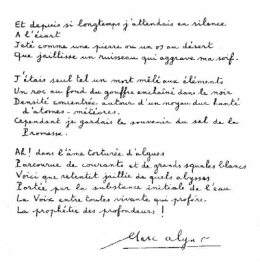 Et depuis si longtemps j'attendais en silence
A l'écart
Jeté comme une pierre ou un os au désert
Que jaillisse un ruisseau qui aggrave ma soif.
J'étais seul tel un mort mêlé aux éléments
Un roc au fond du gouffre enchaîné dans le noir
Densité concentrée autour d'un noyau dur hanté
d'atomes-météores.
Cependant je gardais le souvenir du sel de la
Promesse.
Ah! dans l'âme torturée d'algues
Parcourue de courants et de grands squales blancs
Voici que retentit jaillie de quels abysses
Portée par la substance initiale de l'eau
La Voix entre toutes vivante qui profère.
La prophétie des profondeurs !
Marc Alyn